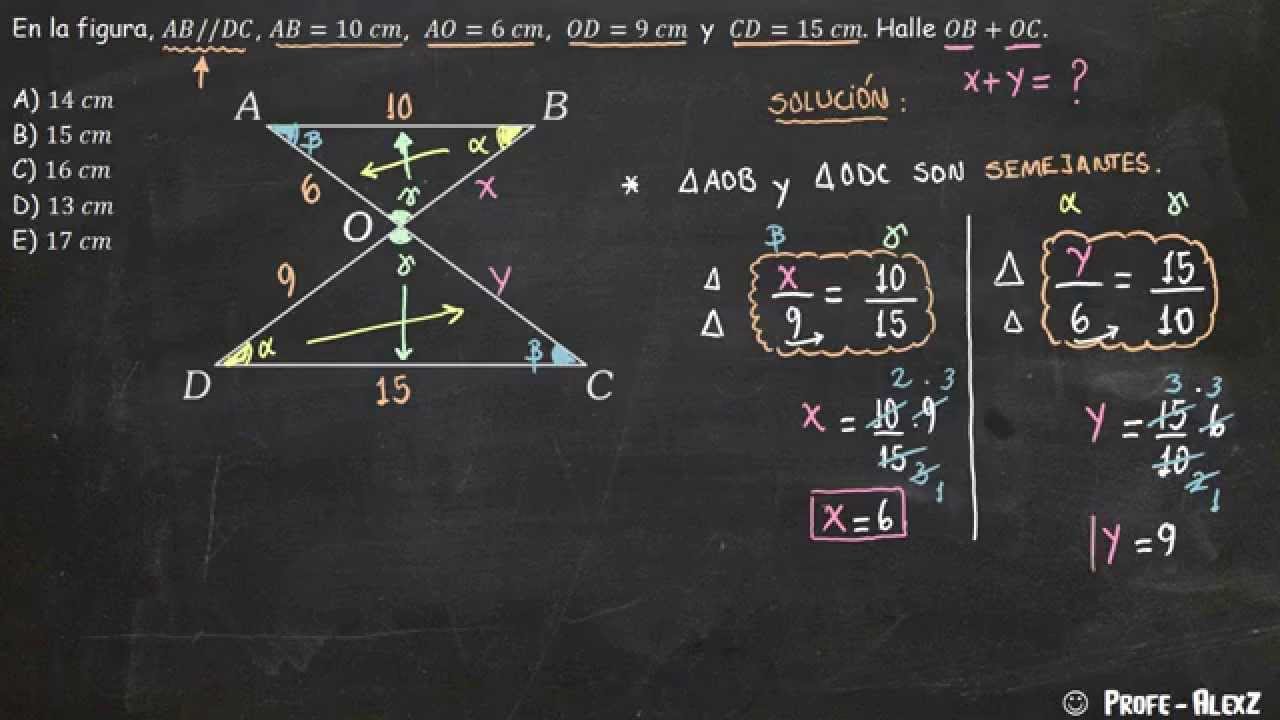 En la figura, AB//DC, AB = 10 cm, AO = 6 cm, OD = 9 cm y CD = 15 cm. Halle OB + OC.
x + y = ?
A) 14 cm
B) 15 cm
C) 16 cm
D) 13 cm
E) 17 cm
A 10 B
β α
6 γ x
O
9 γ y
α β
D 15 C
SOLUCIÓN:
* ΔAOB y ΔODC SON SEMEJANTES.
β γ
Δ x/9 = 10/15
Δ
x = 10·9/15
2 · 3
3
1
x = 6
α γ
Δ y/6 = 15/10
Δ
y = 15·6/10
3 · 3
2
1
y = 9
☺ PROFE - ALEXZ